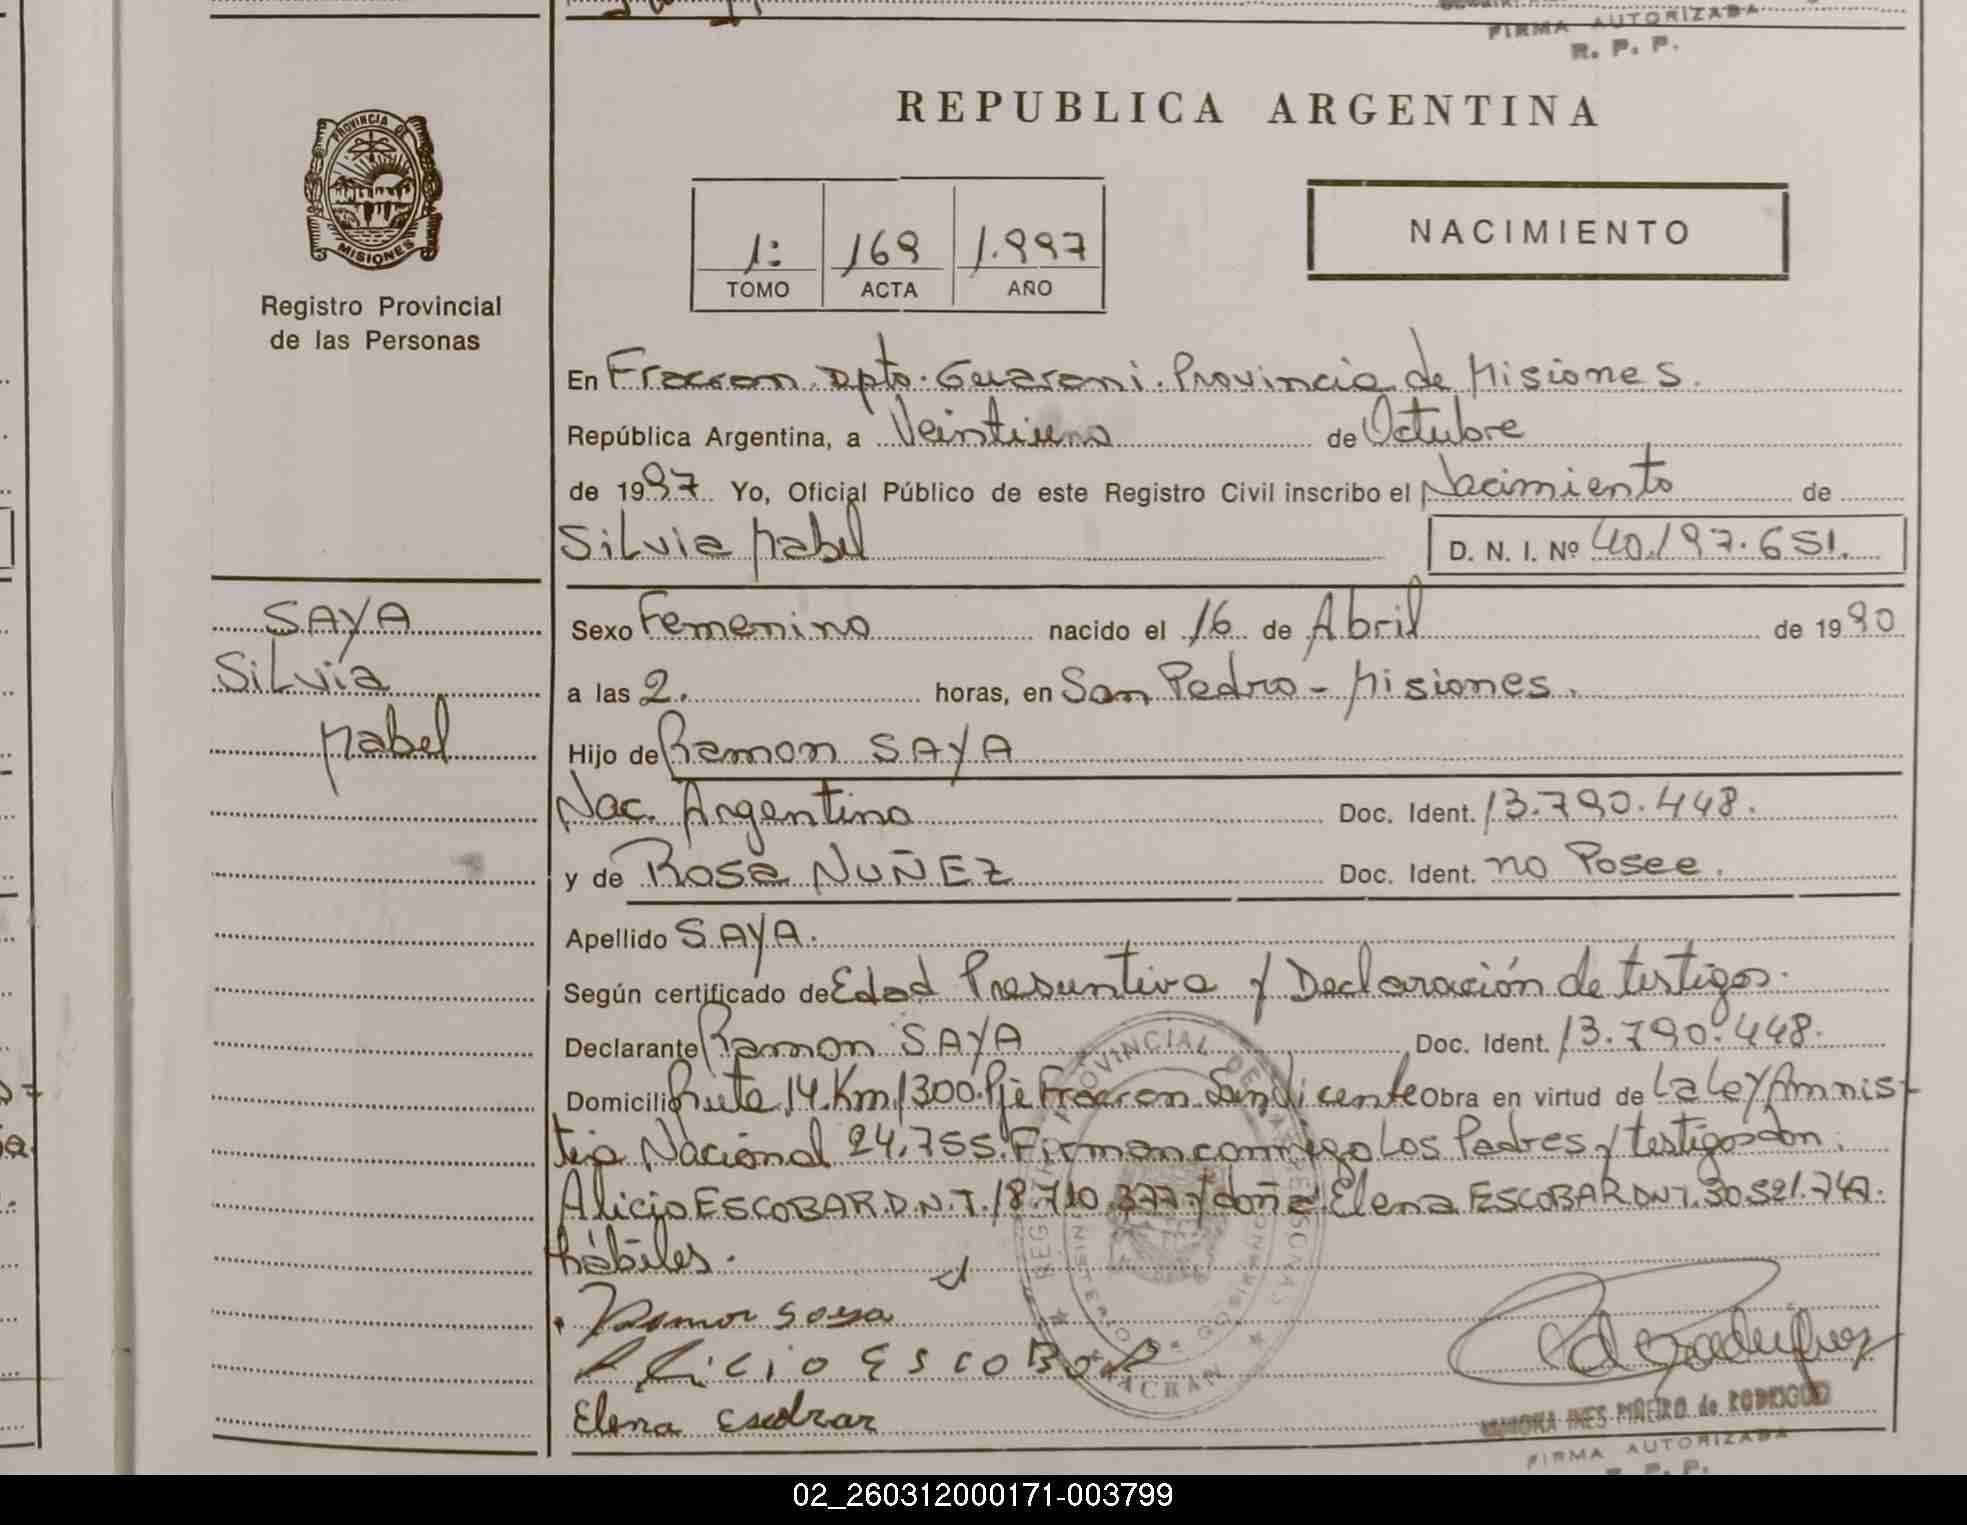 FIRMA AUTORIZADA
R. P. P.
REPUBLICA ARGENTINA
PROVINCIA DE
MISIONES
Registro Provincial
de las Personas
1: 169 1.997
TOMO ACTA AÑO
NACIMIENTO
En Fracran Dpto. Guarani. Provincia de Misiones.
República Argentina, a Veintiuno de Octubre
de 1997 Yo, Oficial Público de este Registro Civil inscribo el Nacimiento de
Silvia Mabel D. N. I. Nº 40.197.651.
SAYA
Silvia
Mabel
Sexo Femenino nacido el 16 de Abril de 1990
a las 2. horas, en San Pedro - Misiones.
Hijo de Ramon SAYA
Nac. Argentino Doc. Ident. 13.790.448.
y de Rosa NUÑEZ Doc. Ident. no Posee.
Apellido SAYA.
Según certificado de Edad Presuntiva y Declaración de testigos.
Declarante Ramon SAYA Doc. Ident. 13.790.448.
Domicilio Ruta 14 Km 1300. Pje Fracran San Vicente Obra en virtud de La Ley Amnis-
tia Nacional 24.755. Firman conmigo Los Padres y testigos don
Alicio ESCOBAR D.N.I. 18.710.377 y doña Elena ESCOBAR DNI. 30.521.747.
hábiles.
Ramon saya
Alicio ESCOBAR
Elena Escobar
REGISTRO PROVINCIAL DE LAS PERSONAS
MINISTERIO DE GOBIERNO
FRACRAN
INES PIÑEIRO de RODRIGUEZ
FIRMA AUTORIZADA
R. P. P.
02_260312000171-003799